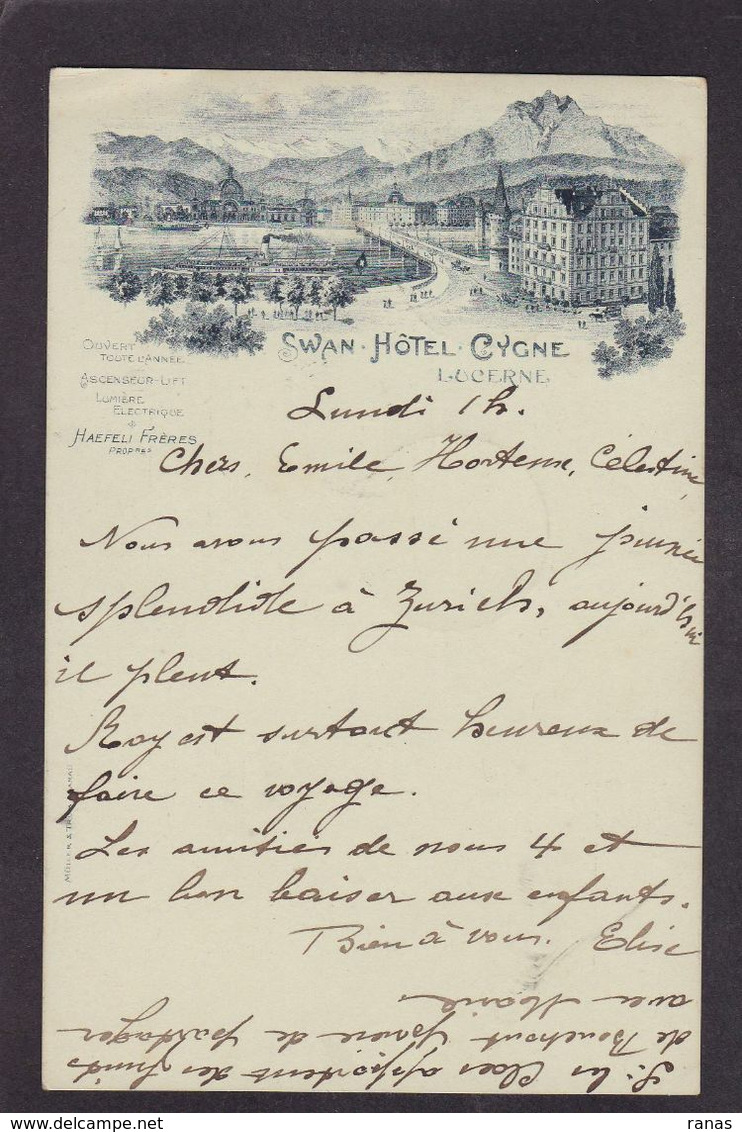 SWAN · HÔTEL · CYGNE
LUCERNE
OUVERT
TOUTE L'ANNÉE
ASCENSEUR-LIFT
LUMIÈRE
ELECTRIQUE
HAEFELI FRÈRES
PROPRES
Lundi 1 h.
Chers, Emile, Hortense, Célestine,
Nous avons passé une journée
splendide à Zurich, aujourd'hui
il pleut.
Roy est surtout heureux de
faire ce voyage.
Les amitiés de nous 4 et
un bon baiser aux enfants.
Bien à vous. Elise
Si les Claes apportent des fruits
de Bouchout prière de partager
avec Marie
MÜLLER &
ranas